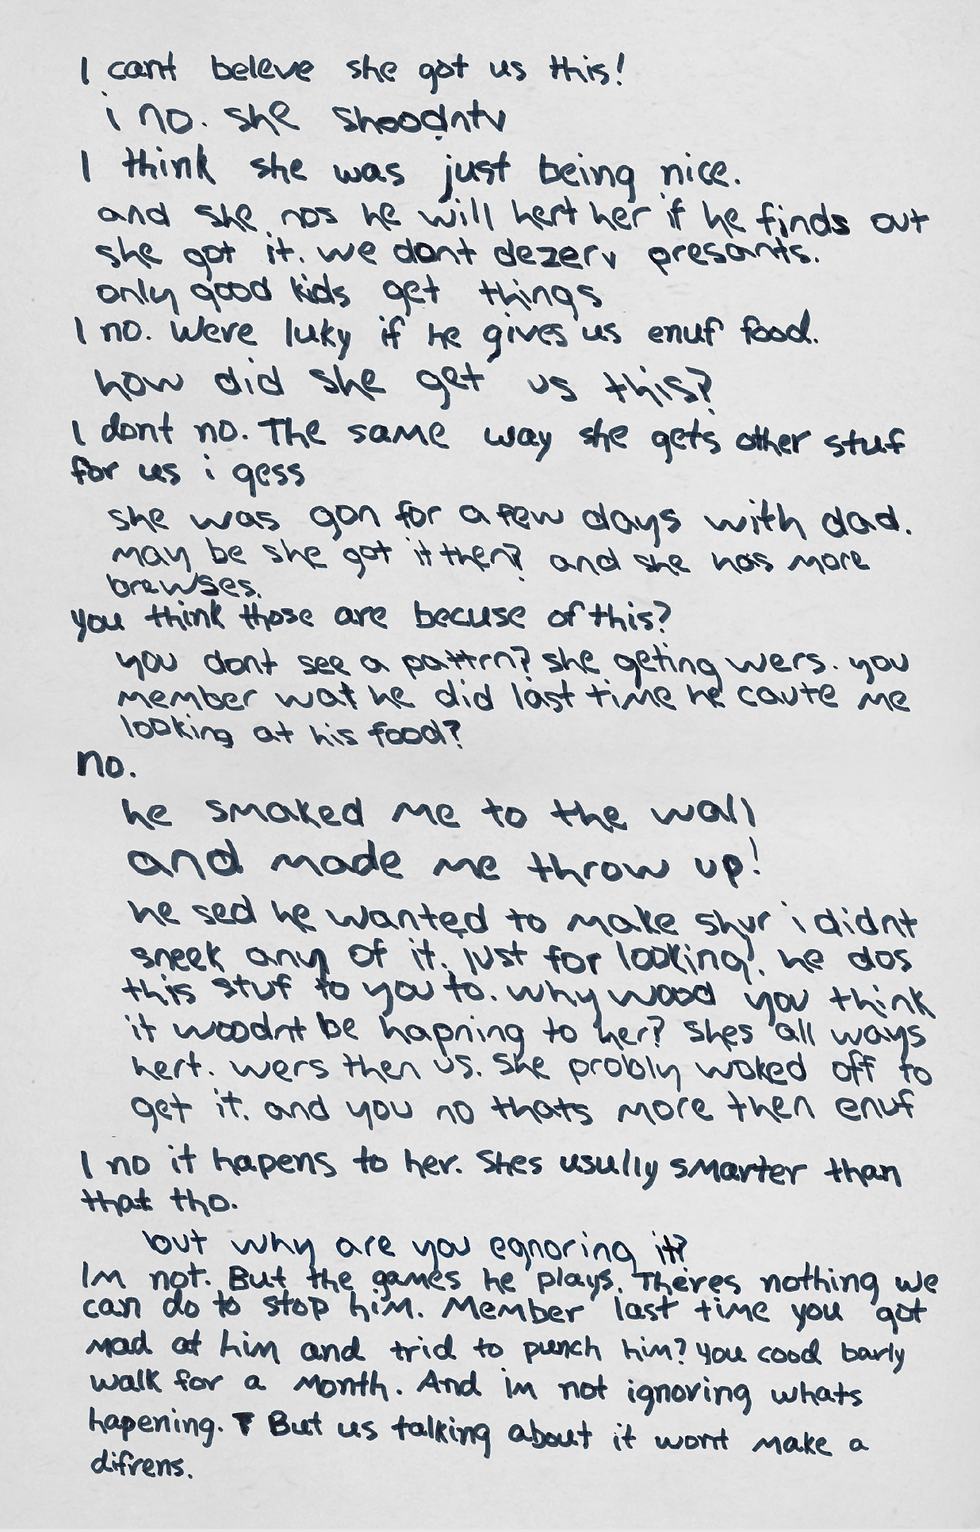 I cant beleve she got us this!
i no. she shoodntv
I think she was just being nice.
and she nos he will hert her if he finds out
she got it. we dont dezerv presants.
only good kids get things
I no. Were luky if he gives us enuf food.
how did she get us this?
I dont no. The same way she gets other stuf
for us i gess
she was gon for a few days with dad.
may be she got it then? and she has more
brewses.
you think those are becuse of this?
you dont see a pattrn? she geting wers. you
member wat he did last time he caute me
looking at his food?
no.
he smaked me to the wall
and made me throw up!
he sed he wanted to make shur i didnt
sneek any of it. just for looking!. he dos
this stuf to you to. why wood you think
it woodnt be hapning to her? shes all ways
hert. wers then us. she probly woked off to
get it. and you no thats more then enuf
I no it hapens to her. Shes usully smarter than
that tho.
but why are you egnoring it?
Im not. But the games he plays. Theres nothing we
can do to stop him. Member last time you got
mad at him and trid to punch him? you cood barly
walk for a month. And im not ignoring whats
hapening. But us talking about it wont make a
difrens.